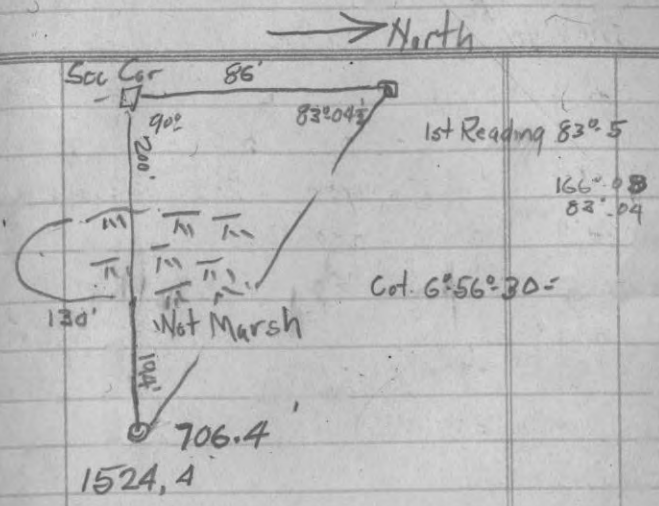 North
Sec Cor 86'
90° 83°-04½
1st Reading 83°-5
200'
166°-08
83°-04
Cot. 6°-56°-30=
130'
Wet Marsh
194'
706.4'
1524,4